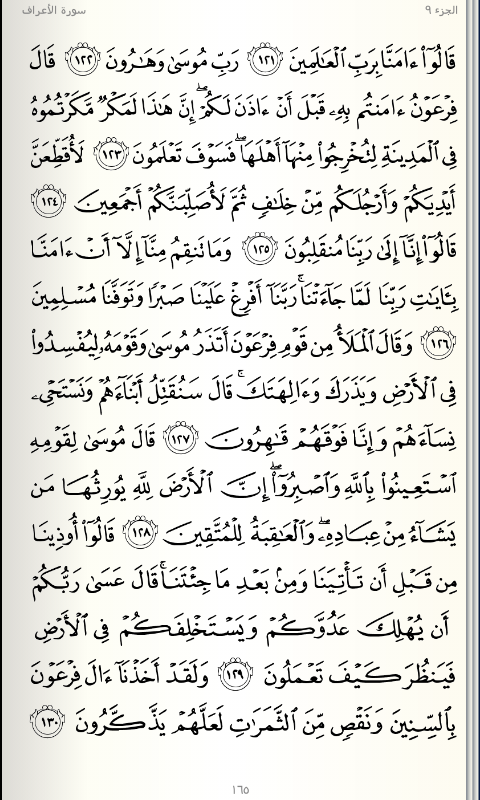 الجزء ٩
سورة الأعراف
قَالُوٓا۟ ءَامَنَّا بِرَبِّ ٱلْعَـٰلَمِينَ ١٢١ رَبِّ مُوسَىٰ وَهَـٰرُونَ ١٢٢ قَالَ
فِرْعَوْنُ ءَامَنتُم بِهِۦ قَبْلَ أَنْ ءَاذَنَ لَكُمْ ۖ إِنَّ هَـٰذَا لَمَكْرٌ مَّكَرْتُمُوهُ
فِى ٱلْمَدِينَةِ لِتُخْرِجُوا۟ مِنْهَآ أَهْلَهَا ۖ فَسَوْفَ تَعْلَمُونَ ١٢٣ لَأُقَطِّعَنَّ
أَيْدِيَكُمْ وَأَرْجُلَكُم مِّنْ خِلَـٰفٍ ثُمَّ لَأُصَلِّبَنَّكُمْ أَجْمَعِينَ ١٢٤
قَالُوٓا۟ إِنَّآ إِلَىٰ رَبِّنَا مُنقَلِبُونَ ١٢٥ وَمَا تَنقِمُ مِنَّآ إِلَّآ أَنْ ءَامَنَّا
بِـَٔايَـٰتِ رَبِّنَا لَمَّا جَآءَتْنَا ۚ رَبَّنَآ أَفْرِغْ عَلَيْنَا صَبْرًا وَتَوَفَّنَا مُسْلِمِينَ
١٢٦ وَقَالَ ٱلْمَلَأُ مِن قَوْمِ فِرْعَوْنَ أَتَذَرُ مُوسَىٰ وَقَوْمَهُۥ لِيُفْسِدُوا۟
فِى ٱلْأَرْضِ وَيَذَرَكَ وَءَالِهَتَكَ ۚ قَالَ سَنُقَتِّلُ أَبْنَآءَهُمْ وَنَسْتَحْىِۦ
نِسَآءَهُمْ وَإِنَّا فَوْقَهُمْ قَـٰهِرُونَ ١٢٧ قَالَ مُوسَىٰ لِقَوْمِهِ
ٱسْتَعِينُوا۟ بِٱللَّهِ وَٱصْبِرُوٓا۟ ۖ إِنَّ ٱلْأَرْضَ لِلَّهِ يُورِثُهَا مَن
يَشَآءُ مِنْ عِبَادِهِۦ ۖ وَٱلْعَـٰقِبَةُ لِلْمُتَّقِينَ ١٢٨ قَالُوٓا۟ أُوذِينَا
مِن قَبْلِ أَن تَأْتِيَنَا وَمِنۢ بَعْدِ مَا جِئْتَنَا ۚ قَالَ عَسَىٰ رَبُّكُمْ
أَن يُهْلِكَ عَدُوَّكُمْ وَيَسْتَخْلِفَكُمْ فِى ٱلْأَرْضِ
فَيَنظُرَ كَيْفَ تَعْمَلُونَ ١٢٩ وَلَقَدْ أَخَذْنَآ ءَالَ فِرْعَوْنَ
بِٱلسِّنِينَ وَنَقْصٍ مِّنَ ٱلثَّمَرَٰتِ لَعَلَّهُمْ يَذَّكَّرُونَ ١٣٠
١٦٥